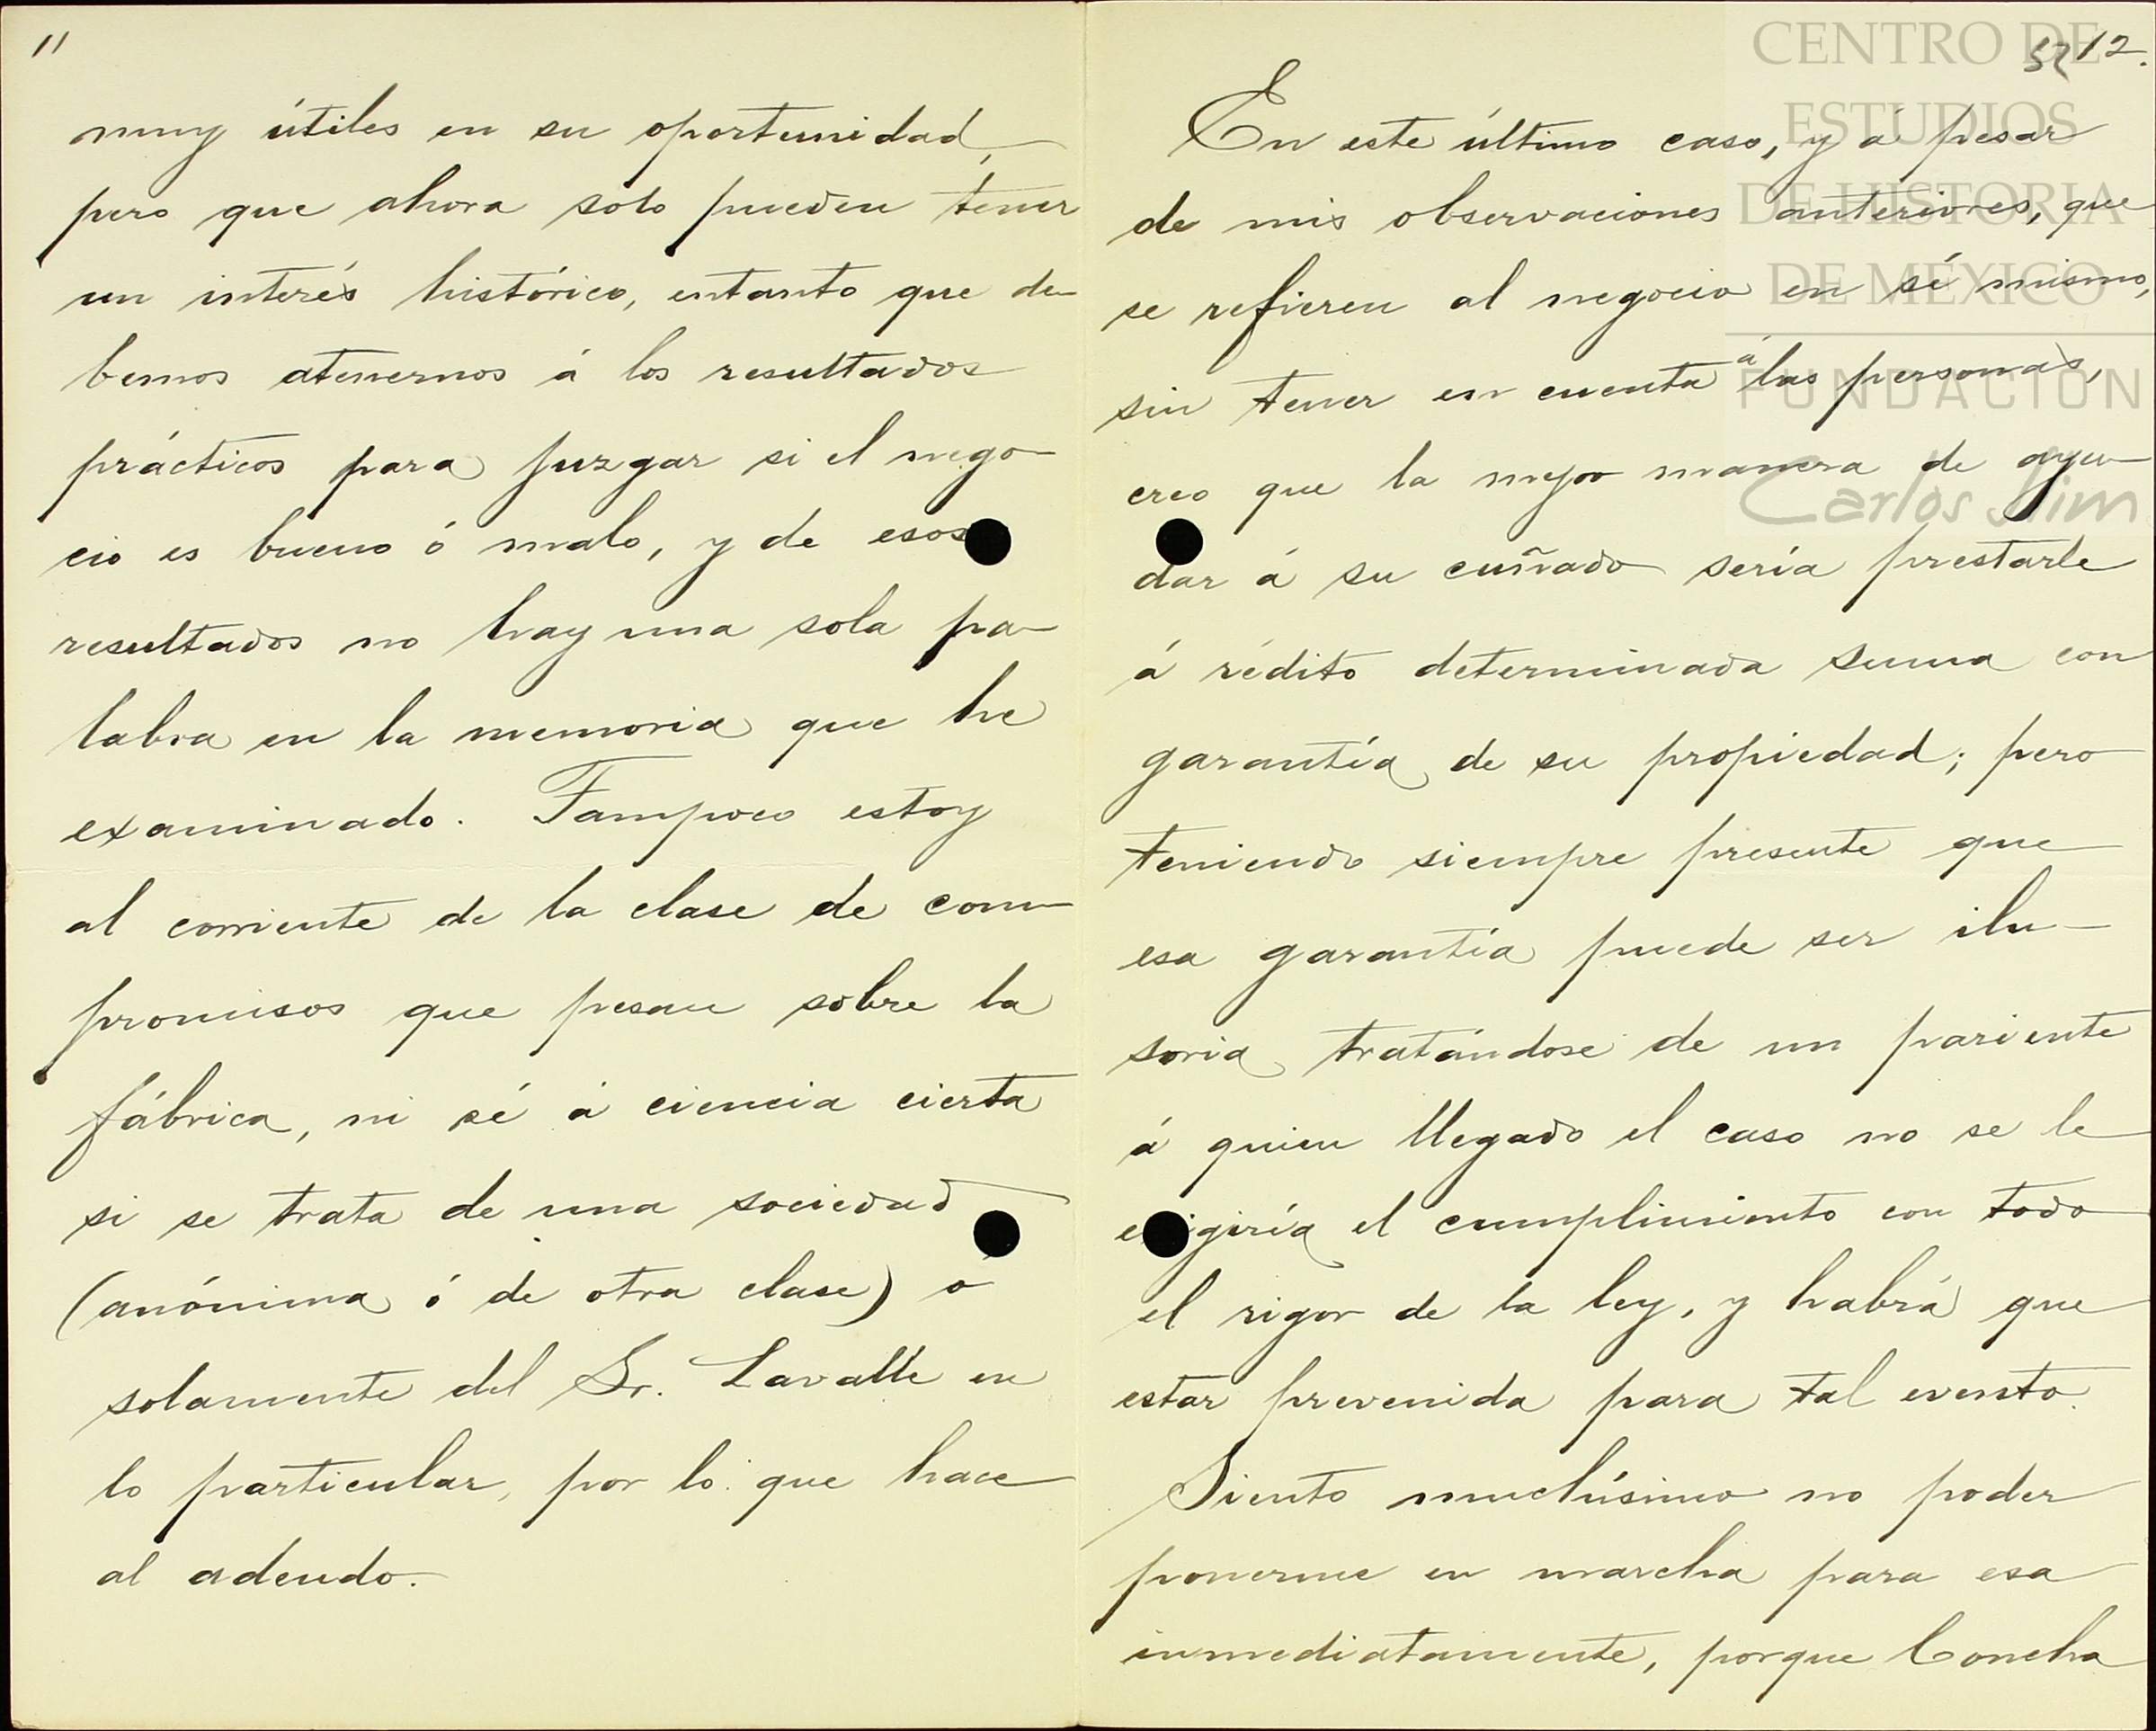 11
muy útiles en su oportunidad,
pero que ahora solo pueden tener
un interés histórico, entanto que de-
bemos atenernos á los resultados
prácticos para juzgar si el nego-
cio es bueno ó malo, y de esos
resultados no hay una sola pa-
labra en la memoria que he
examinado. Tampoco estoy
al corriente de la clase de com-
promisos que pesan sobre la
fábrica, ni sé á ciencia cierta
si se trata de una sociedad
(anónima ó de otra clase) o
solamente del Sr. Lavalle en
lo particular, por lo que hace
al adeudo.
12.
En este último caso, y á pesar
de mis observaciones anteriores, que
se refieren al negocio en sí mismo,
sin tener en cuenta á las personas,
creo que la mejor manera de ayu-
dar á su cuñado sería prestarle
á rédito determinada suma con
garantía de su propiedad; pero
teniendo siempre presente que
esa garantía puede ser ilu-
soria tratándose de un pariente
á quien llegado el caso no se le
exigiría el cumplimiento con todo
el rigor de la ley, y habrá que
estar prevenida para tal evento.
Siento muchísimo no poder
ponerme en marcha para esa
inmediatamente, porque Concha
CENTRO DE
ESTUDIOS
DE HISTORIA
DE MÉXICO
FUNDACIÓN
Carlos Slim